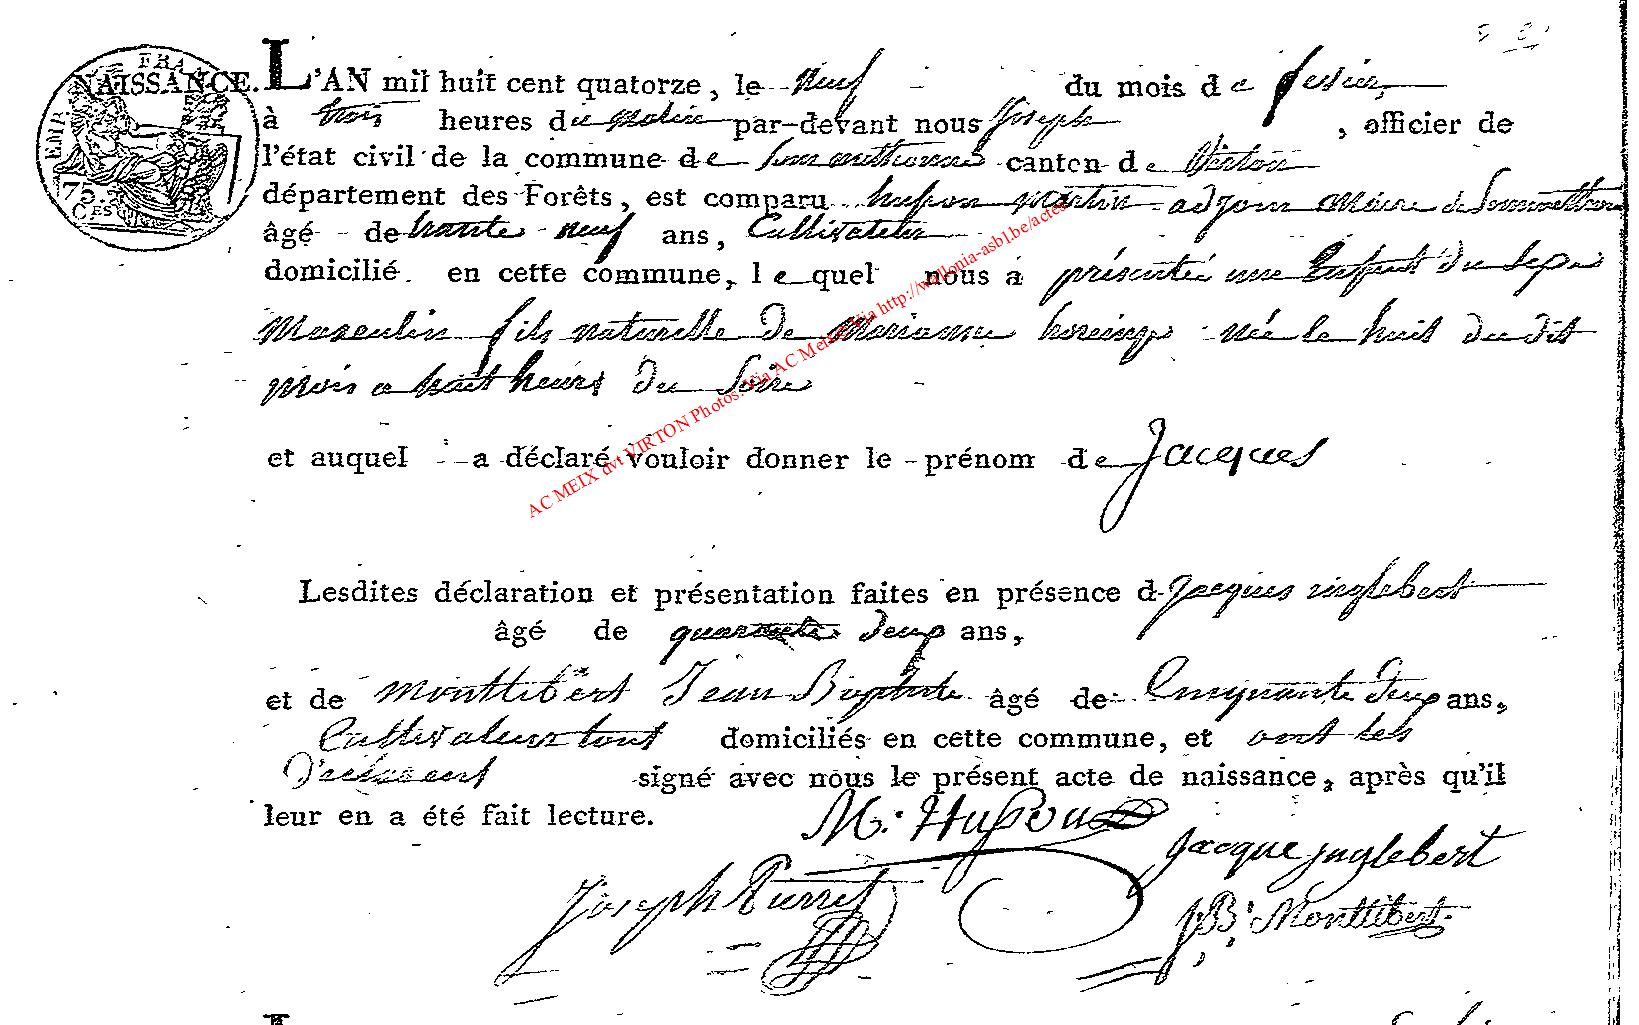 NAISSANCE. L'AN mil huit cent quatorze, le neuf du mois de fevrier,
à trois heures du matin par-devant nous Joseph , officier de
l'état civil de la commune de Sommethonne canton de Virton
département des Forêts, est comparu huson martin adjoin Maire de Sommethonne
âgé de trante neuf ans, Cultivateur
domicilié en cette commune, lequel nous a présentée une Enfent du Sexe
Masculin fils naturelle de Marianne née le huit du dit
mois a huit heurs du Soire
et auquel a déclaré vouloir donner le prénom de Jacques
Lesdites déclaration et présentation faites en présence d Jacques inglebert
âgé de quarante deux ans,
et de Monttibert Jean Baptiste âgé de Cinquante deux ans,
Cultivateur tout domiciliés en cette commune, et ont les
signé avec nous le présent acte de naissance, après qu'il
leur en a été fait lecture.
M: Huson
Jacque juglebert
Joseph Pierret
J:B: Monttibert
EMP. FRA
75.
CES
AC MEIX dvt VIRTON Photos: Via AC Meix Via http://wallonia-asbl.be/actes